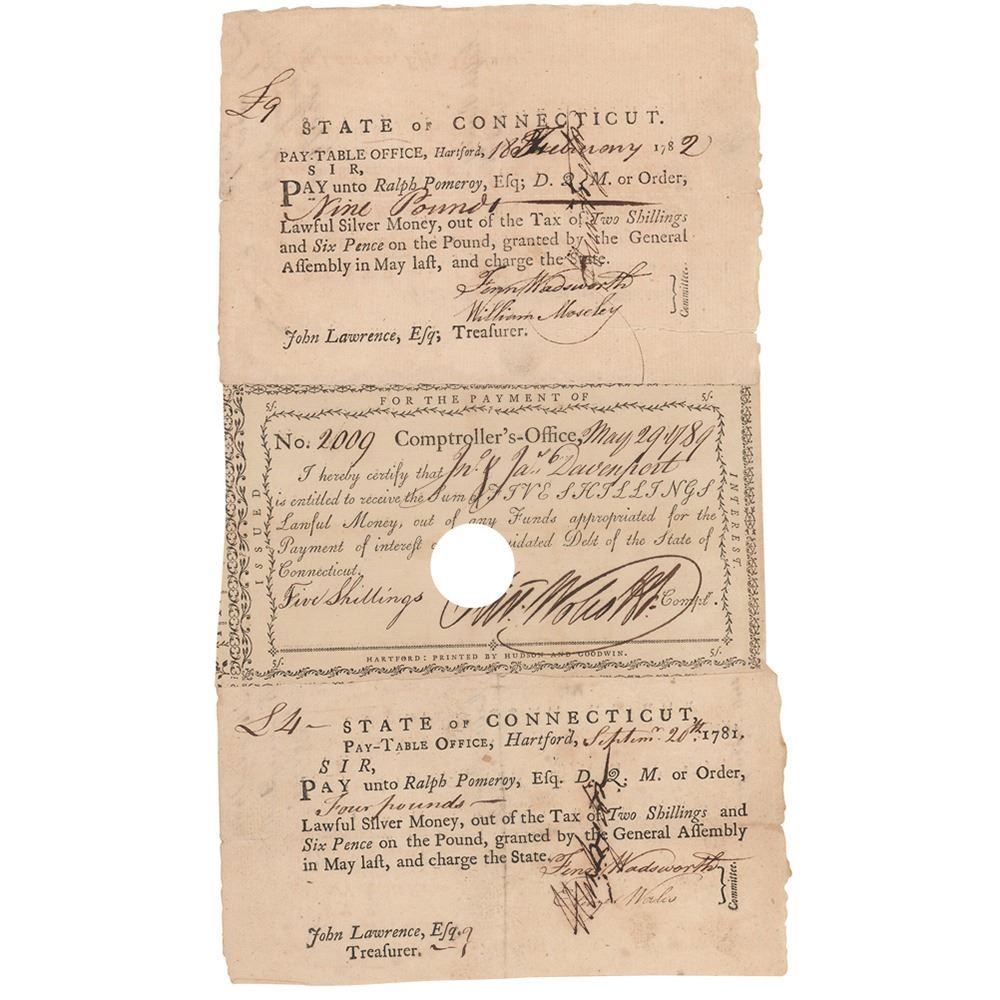 £9
STATE OF CONNECTICUT.
PAY-TABLE OFFICE, Hartford, 18 February 1782
SIR,
PAY unto Ralph Pomeroy, Esq; D. Q. M. or Order,
Nine Pounds
Lawful Silver Money, out of the Tax of Two Shillings
and Six Pence on the Pound, granted by the General
Aſſembly in May laſt, and charge the State.
Fenn Wadsworth
William Moseley
Committee.
John Lawrence, Eſq; Treaſurer.
5/. FOR THE PAYMENT OF 5/.
ISSUED
INTEREST.
No. 2009 Comptroller's-Office, May 29 1789
I hereby certify that Jno. & Jas. Davenport
is entitled to receive the Sum of FIVE SHILLINGS
Lawful Money, out of any Funds appropriated for the
Payment of intereſt uidated Debt of the State of
Connecticut.
Five Shillings Wolcott Compt.
5/. HARTFORD: PRINTED BY HUDSON AND GOODWIN. 5/.
£4 – STATE OF CONNECTICUT,
PAY-TABLE OFFICE, Hartford, Septemr. 20th. 1781.
SIR,
PAY unto Ralph Pomeroy, Eſq. D. Q. M. or Order,
Four pounds —
Lawful Silver Money, out of the Tax of Two Shillings and
Six Pence on the Pound, granted by the General Aſſembly
in May laſt, and charge the State.
Fenn Wadsworth
Wales
Committee.
John Lawrence, Eſq.
Treaſurer.